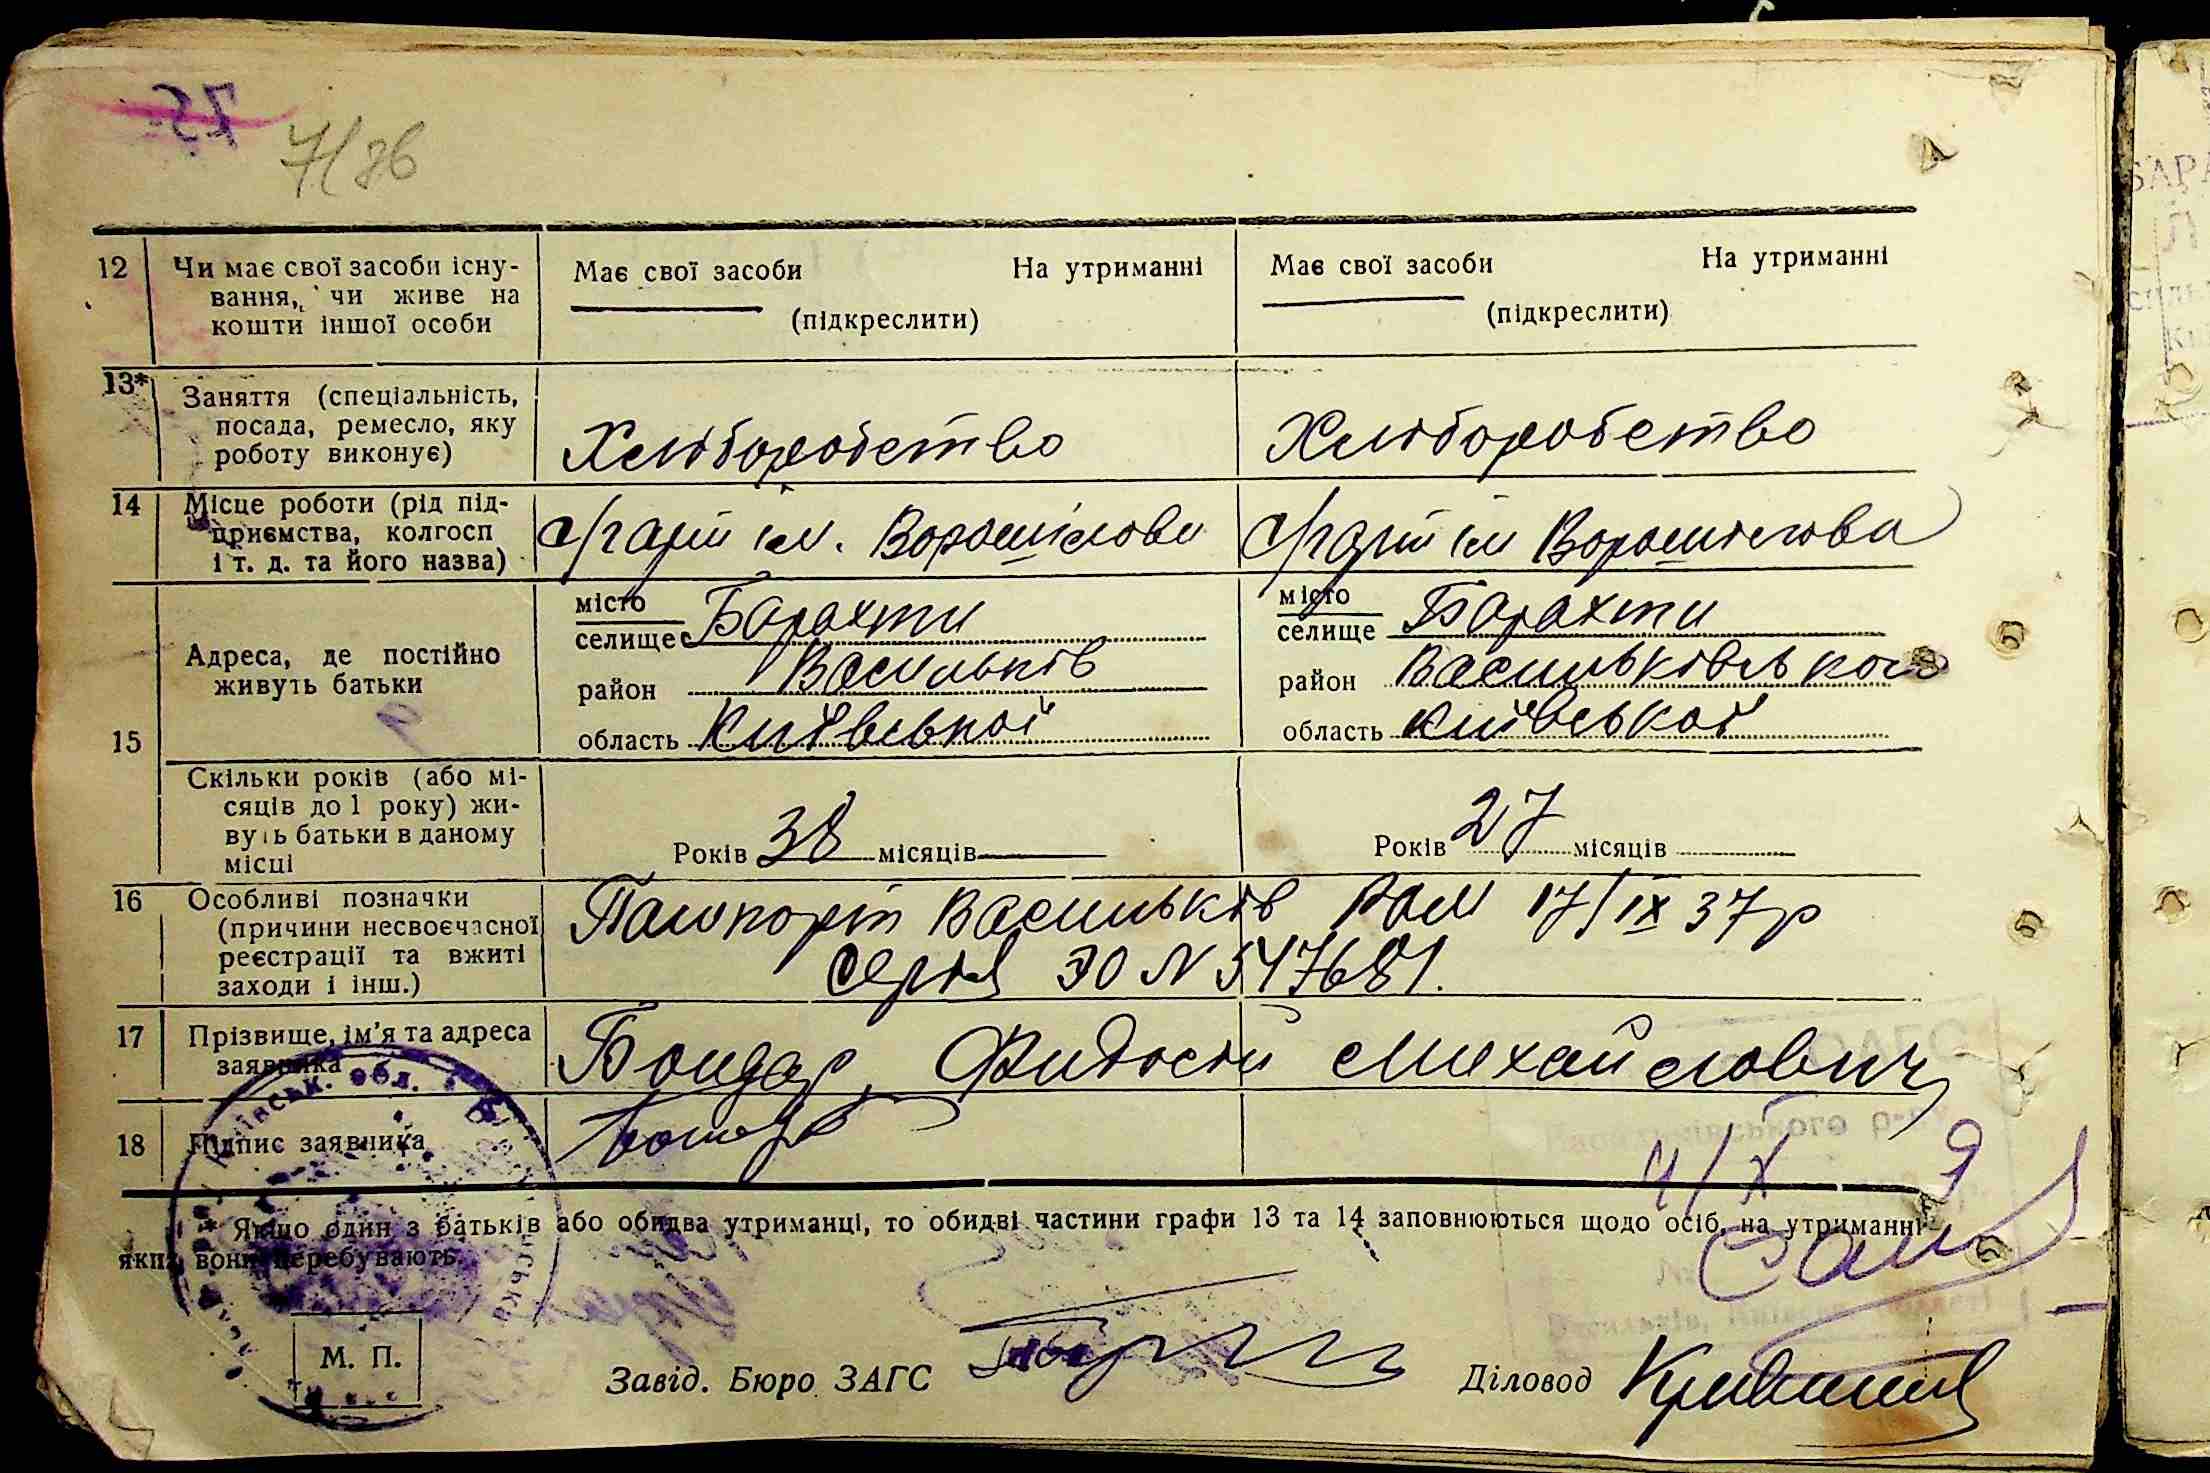 75
7/ЗВ
12 Чи має свої засоби існу-
вання, чи живе на
кошти іншої особи
Має свої засоби На утриманні
(підкреслити)
Має свої засоби На утриманні
(підкреслити)
13* Заняття (спеціальність,
посада, ремесло, яку
роботу виконує)
Хліборобство
Хліборобство
14 Місце роботи (рід під-
приємства, колгосп
і т. д. та його назва)
ім. Ворошілова
ім Ворошілова
15 Адреса, де постійно
живуть батьки
місто
селище с Барахти
район Васильків
область Київської
місто
селище Барахти
район Васильківського
область Київської
Скільки років (або мі-
сяців до 1 року) жи-
вуть батьки в даному
місці
Років 38 місяців
Років 27 місяців
16 Особливі позначки
(причини несвоєчасної
реєстрації та вжиті
заходи і інш.)
Пашпорт Васильків РОМ 17/IX 37р
серія ЭО N 547681.
17 Прізвище, ім'я та адреса
заявника
Бондар, Фидосій Михайлович
18 Підпис заявника
4/X
* Якщо один з батьків або обидва утриманці, то обидві частини графи 13 та 14 заповнюються щодо осіб, на утриманні
яких вони перебувають.
Київськ. обл.
М. П.
Завід. Бюро ЗАГС
Діловод